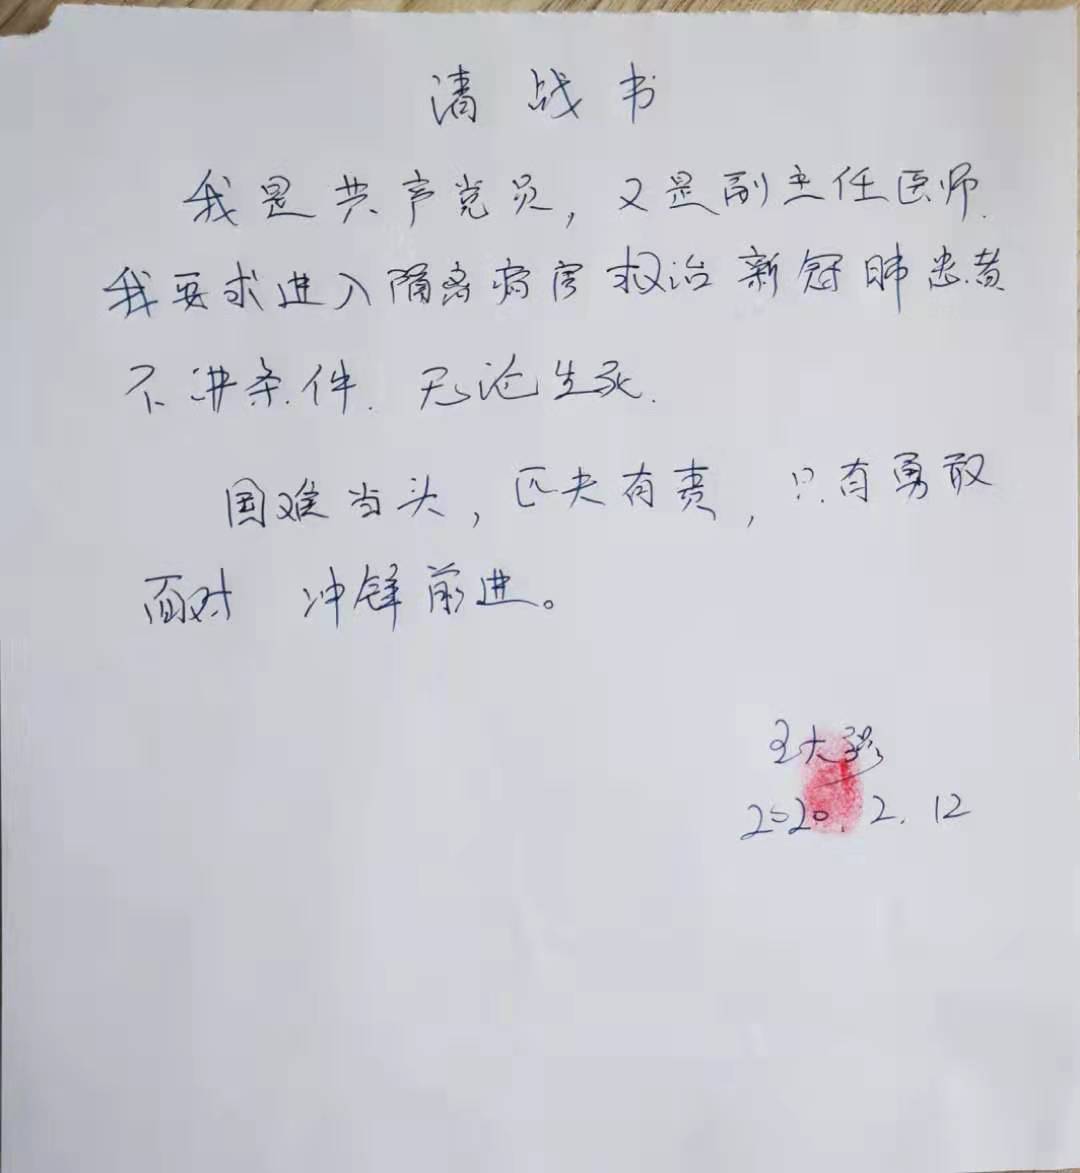 请战书
我是共产党员，又是副主任医师.
我要求进入隔离病房救治新冠肺患者
不讲条件. 无论生死.
国难当头，匹夫有责，只有勇敢
面对 冲锋前进。
王大
2020.2.12